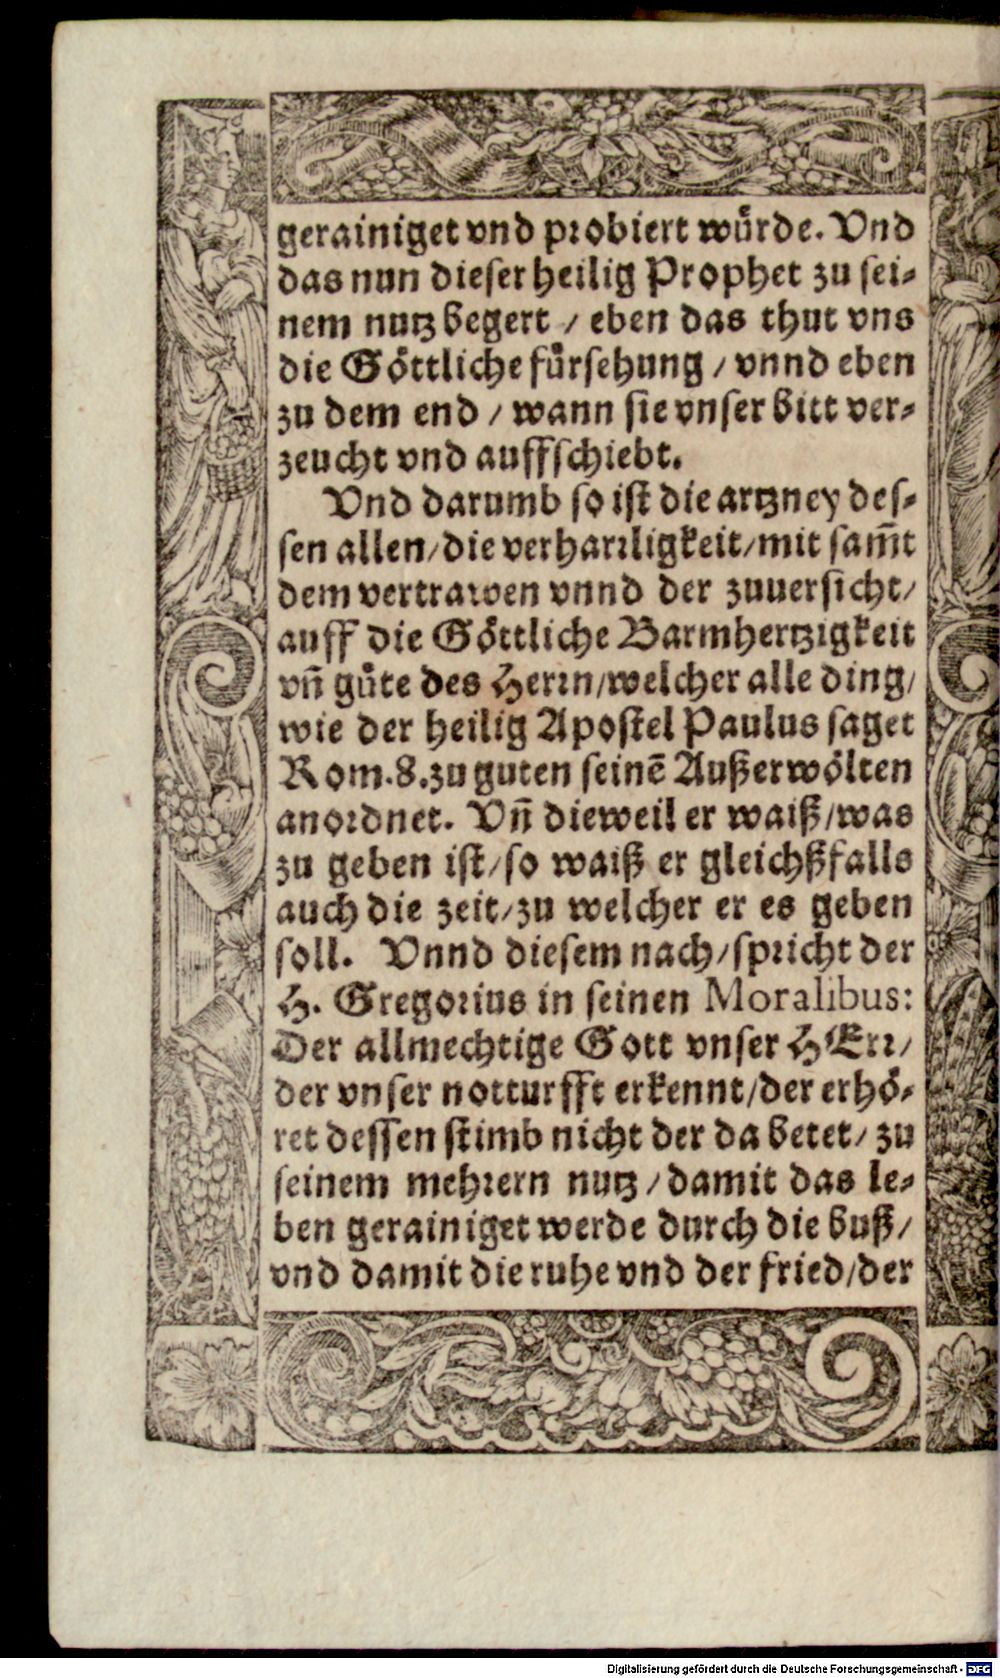 gerainiget vnd probiert wuͤrde. Vnd
das nun dieser heilig Prophet zu sei-
nem nutz begert / eben das thut vns
die Goͤttliche fuͤrsehung / vnnd eben
zu dem end / wann sie vnser bitt ver-
zeucht vnd auffschiebt.
Vnd darumb so ist die artzney des-
sen allen / die verharrligkeit / mit sam̃t
dem vertrawen vnnd der zuuersicht /
auff die Goͤttliche Barmhertzigkeit
vñ guͤte des Herrn / welcher alle ding /
wie der heilig Apostel Paulus saget
Rom. 8. zu guten seinẽ Außerwoͤlten
anordnet. Vñ dieweil er waiß / was
zu geben ist / so waiß er gleichßfalls
auch die zeit / zu welcher er es geben
soll. Vnnd diesem nach / spricht der
H. Gregorius in seinen Moralibus:
Der allmechtige Gott vnser HErr /
der vnser notturfft erkennt / der erhoͤ-
ret dessen stimb nicht der da betet / zu
seinem mehrern nutz / damit das le-
ben gerainiget werde durch die buß /
vnd damit die ruhe vnd der fried / der
Digitalisierung gefördert durch die Deutsche Forschungsgemeinschaft - DFG